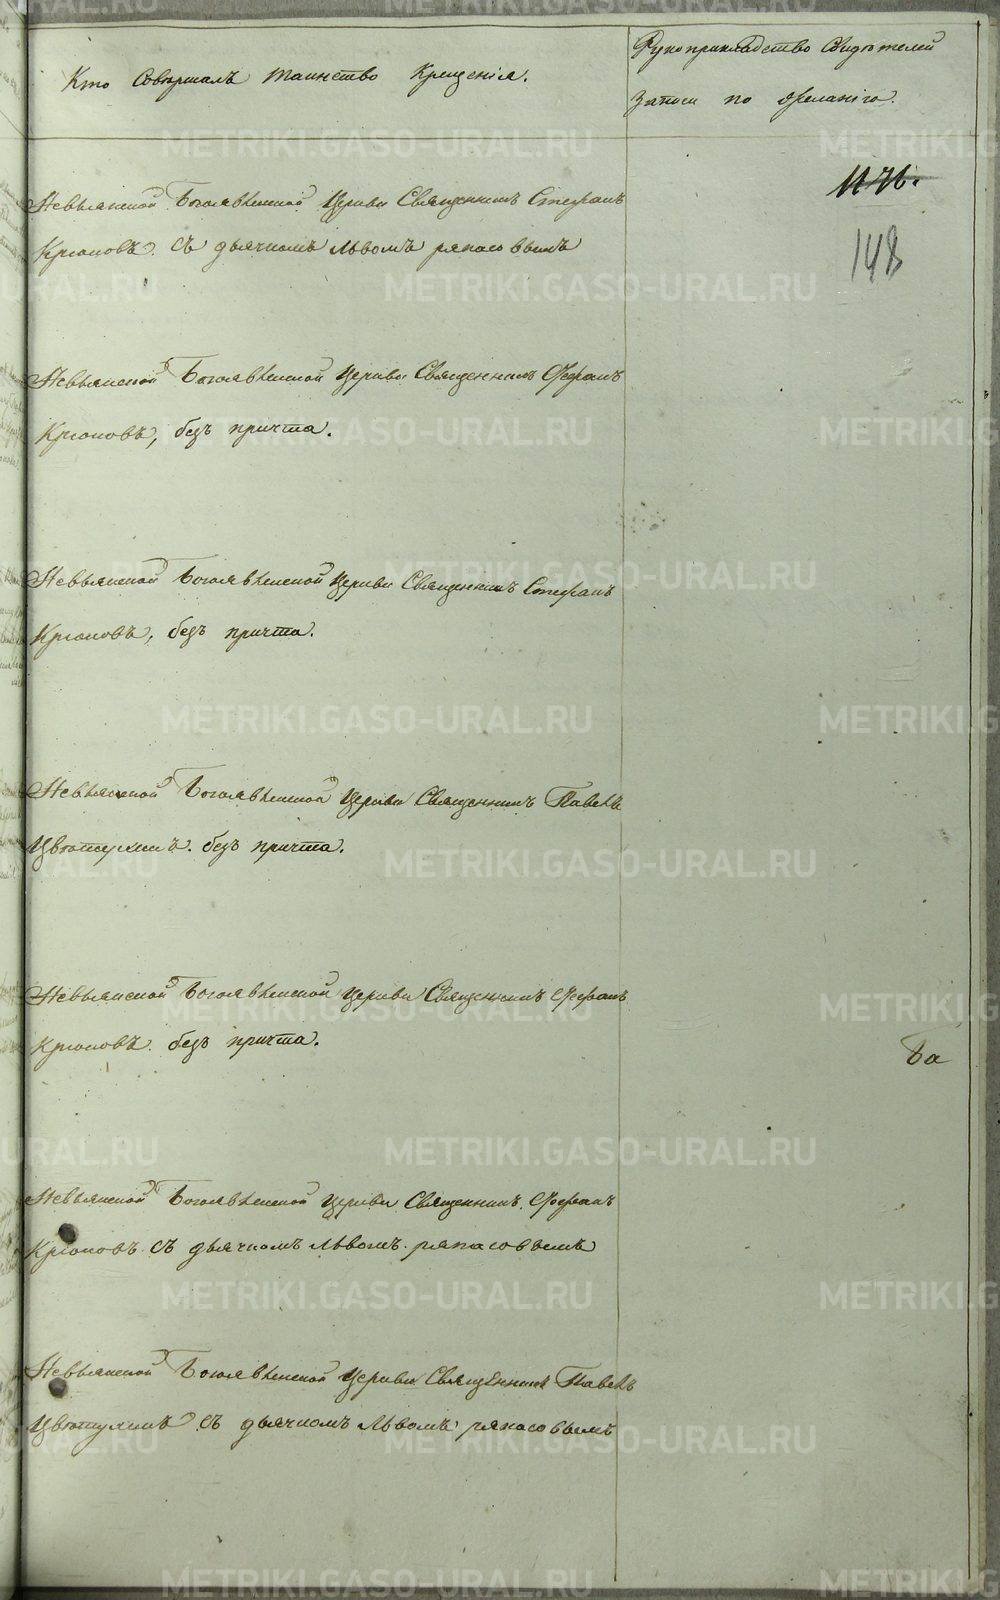 Кто Совершалъ таинство Крещенія.
Рукоприкладство Свидѣтелей
записи по желанію.
148
Невьянской Богоявленской Церкви Священникъ Стефанъ
Крюковъ съ дьячкомъ Львомъ ряпасовымъ
Невьянской Богоявленской Церкви Священникъ Стефанъ
Крюковъ, безъ причта.
Невьянской Богоявленской Церкви Священникъ Стефанъ
Крюковъ, безъ причта.
Невьянской Богоявленской Церкви Священникъ Павелъ
Цвѣтухинъ. безъ причта.
Невьянской Богоявленской Церкви Священникъ Стефанъ
Крюковъ. безъ причта.
Невьянской Богоявленской Церкви Священникъ Стефанъ
Крюковъ съ дьячкомъ Львомъ ряпасовымъ
Невьянской Богоявленской Церкви Священникъ Павелъ
Цвѣтухинъ съ дьячкомъ Львомъ ряпасовымъ
METRIKI.GASO-URAL.RU